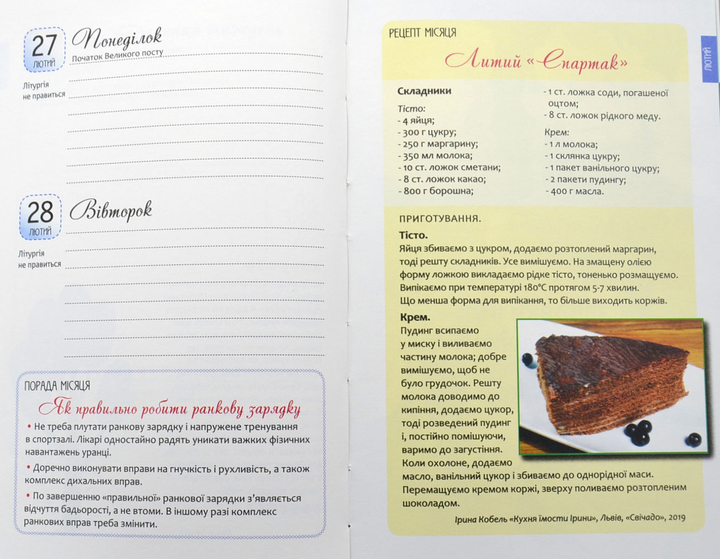 27
ЛЮТИЙ
Понеділок
Початок Великого посту
Літургія
не правиться
28
ЛЮТИЙ
Вівторок
Літургія
не правиться
ПОРАДА МІСЯЦЯ
Як правильно робити ранкову зарядку
• Не треба плутати ранкову зарядку і напружене тренування
в спортзалі. Лікарі одностайно радять уникати важких фізичних
навантажень уранці.
• Доречно виконувати вправи на гнучкість і рухливість, а також
комплекс дихальних вправ.
• По завершенню «правильної» ранкової зарядки з’являється
відчуття бадьорості, а не втоми. В іншому разі комплекс
ранкових вправ треба змінити.
РЕЦЕПТ МІСЯЦЯ
Литий «Спартак»
Складники
Тісто:
- 4 яйця;
- 300 г цукру;
- 250 г маргарину;
- 350 мл молока;
- 10 ст. ложок сметани;
- 8 ст. ложок какао;
- 800 г борошна;
- 1 ст. ложка соди, погашеної
оцтом;
- 8 ст. ложок рідкого меду.
Крем:
- 1 л молока;
- 1 склянка цукру;
- 1 пакет ванільного цукру;
- 2 пакети пудингу;
- 400 г масла.
ПРИГОТУВАННЯ.
Тісто.
Яйця збиваємо з цукром, додаємо розтоплений маргарин,
тоді решту складників. Усе вимішуємо. На змащену олією
форму ложкою викладаємо рідке тісто, тоненько розмащуємо.
Випікаємо при температурі 180°С протягом 5-7 хвилин.
Що менша форма для випікання, то більше виходить коржів.
Крем.
Пудинг всипаємо
у миску і виливаємо
частину молока; добре
вимішуємо, щоб не
було грудочок. Решту
молока доводимо до
кипіння, додаємо цукор,
тоді розведений пудинг
і, постійно помішуючи,
варимо до загустіння.
Коли охолоне, додаємо
масло, ванільний цукор і збиваємо до однорідної маси.
Перемащуємо кремом коржі, зверху поливаємо розтопленим
шоколадом.
Ірина Кобель «Кухня їмости Ірини», Львів, «Свічадо», 2019
ЛЮТИЙ